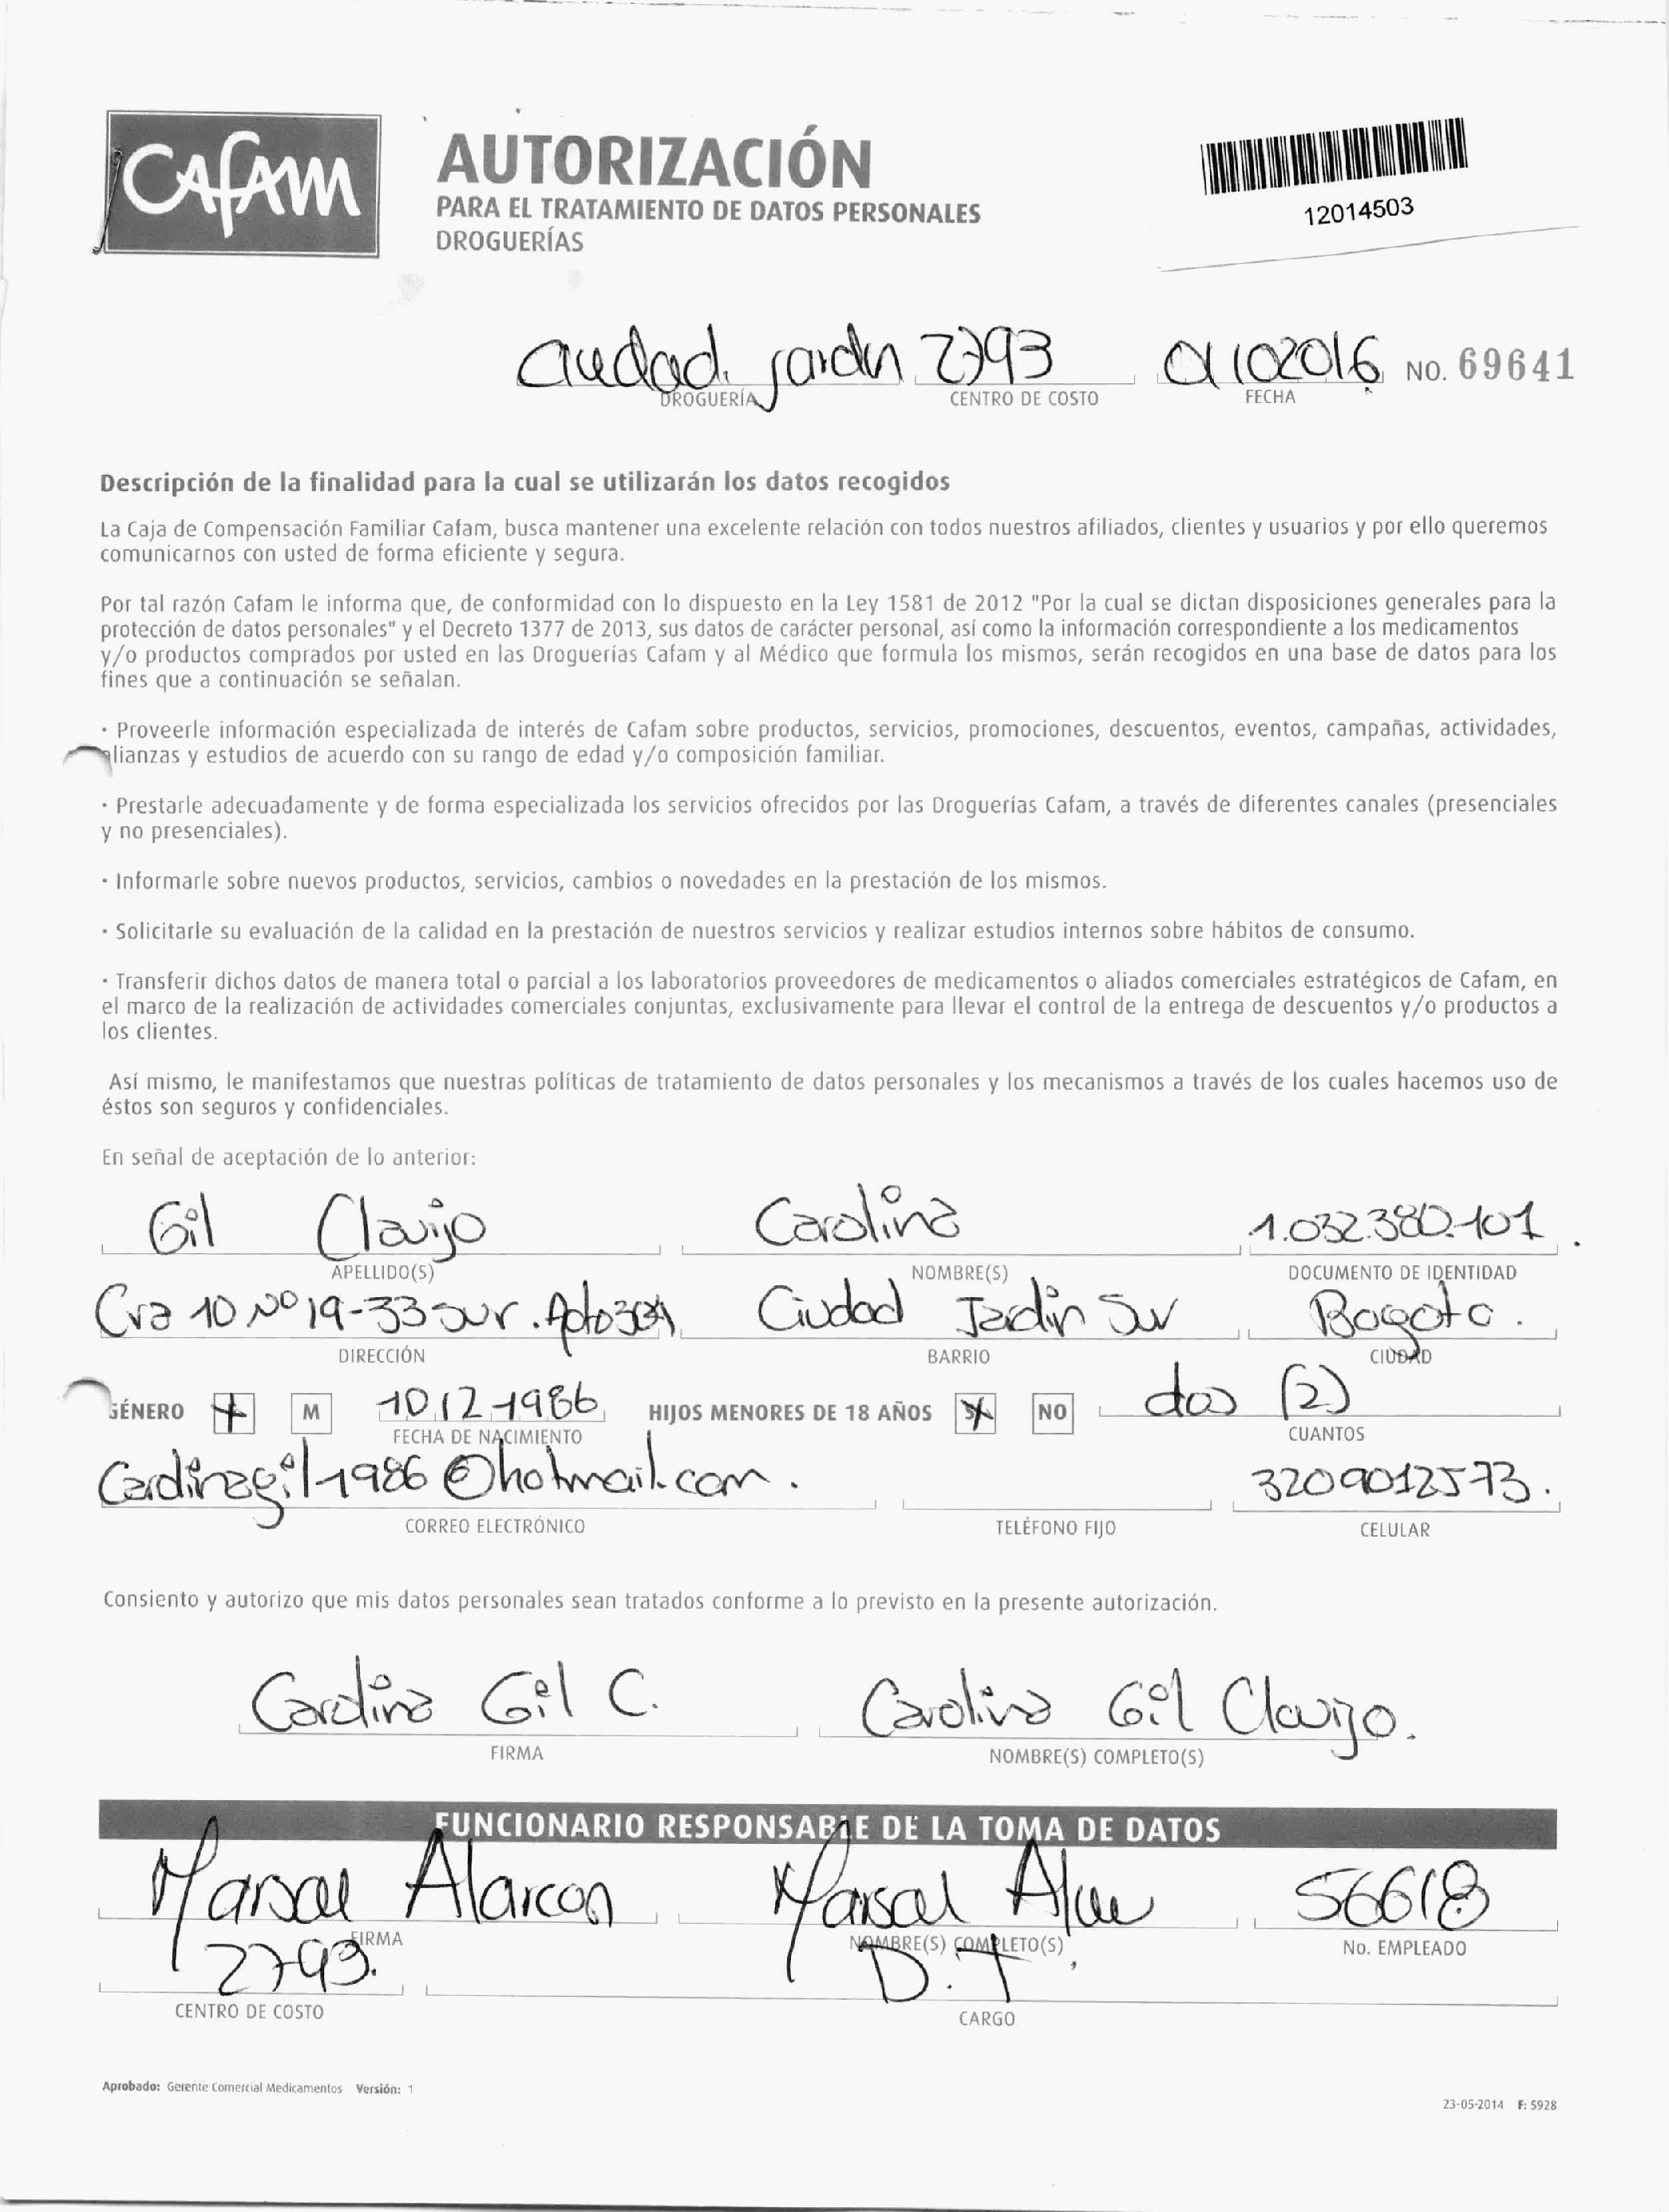 CAFAM
AUTORIZACIÓN
PARA EL TRATAMIENTO DE DATOS PERSONALES
DROGUERÍAS
12014503
Ciudad jardin 2793 01102016 NO. 69641
DROGUERÍA CENTRO DE COSTO FECHA
Descripción de la finalidad para la cual se utilizarán los datos recogidos
La Caja de Compensación Familiar Cafam, busca mantener una excelente relación con todos nuestros afiliados, clientes y usuarios y por ello queremos
comunicarnos con usted de forma eficiente y segura.
Por tal razón Cafam le informa que, de conformidad con lo dispuesto en la Ley 1581 de 2012 "Por la cual se dictan disposiciones generales para la
protección de datos personales" y el Decreto 1377 de 2013, sus datos de carácter personal, así como la información correspondiente a los medicamentos
y/o productos comprados por usted en las Droguerías Cafam y al Médico que formula los mismos, serán recogidos en una base de datos para los
fines que a continuación se señalan.
· Proveerle información especializada de interés de Cafam sobre productos, servicios, promociones, descuentos, eventos, campañas, actividades,
alianzas y estudios de acuerdo con su rango de edad y/o composición familiar.
· Prestarle adecuadamente y de forma especializada los servicios ofrecidos por las Droguerías Cafam, a través de diferentes canales (presenciales
y no presenciales).
· Informarle sobre nuevos productos, servicios, cambios o novedades en la prestación de los mismos.
· Solicitarle su evaluación de la calidad en la prestación de nuestros servicios y realizar estudios internos sobre hábitos de consumo.
· Transferir dichos datos de manera total o parcial a los laboratorios proveedores de medicamentos o aliados comerciales estratégicos de Cafam, en
el marco de la realización de actividades comerciales conjuntas, exclusivamente para llevar el control de la entrega de descuentos y/o productos a
los clientes.
Así mismo, le manifestamos que nuestras políticas de tratamiento de datos personales y los mecanismos a través de los cuales hacemos uso de
éstos son seguros y confidenciales.
En señal de aceptación de lo anterior:
Gil Clavijo Carolina 1.032.380.101.
APELLIDO(S) NOMBRE(S) DOCUMENTO DE IDENTIDAD
Cra 10 Nº 19-33 sur. Apto 304 Ciudad Jardin Sur Bogota.
DIRECCIÓN BARRIO CIUDAD
GÉNERO M 10 12 1986 HIJOS MENORES DE 18 AÑOS SI NO dos (2)
FECHA DE NACIMIENTO CUANTOS
Carolinagil1986@hotmail.com. 3209012573.
CORREO ELECTRÓNICO TELÉFONO FIJO CELULAR
Consiento y autorizo que mis datos personales sean tratados conforme a lo previsto en la presente autorización.
Carolina Gil C. Carolina Gil Clavijo.
FIRMA NOMBRE(S) COMPLETO(S)
FUNCIONARIO RESPONSABLE DE LA TOMA DE DATOS
Marisol Alarcon Marisol 56618
FIRMA NOMBRE(S) COMPLETO(S) No. EMPLEADO
2793. D.T
CENTRO DE COSTO CARGO
Aprobado: Gerente Comercial Medicamentos Versión: 1
23-05-2014 F: 5928